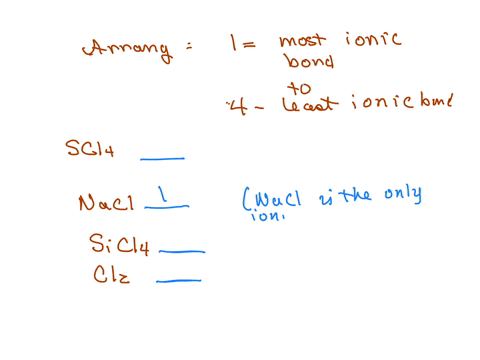 Arrang = 1 = most ionic
bond
to
4 - least ionic bond
SCl4 ___
NaCl 1 (NaCl is the only
ion.
SiCl4 ___
Cl2 ___